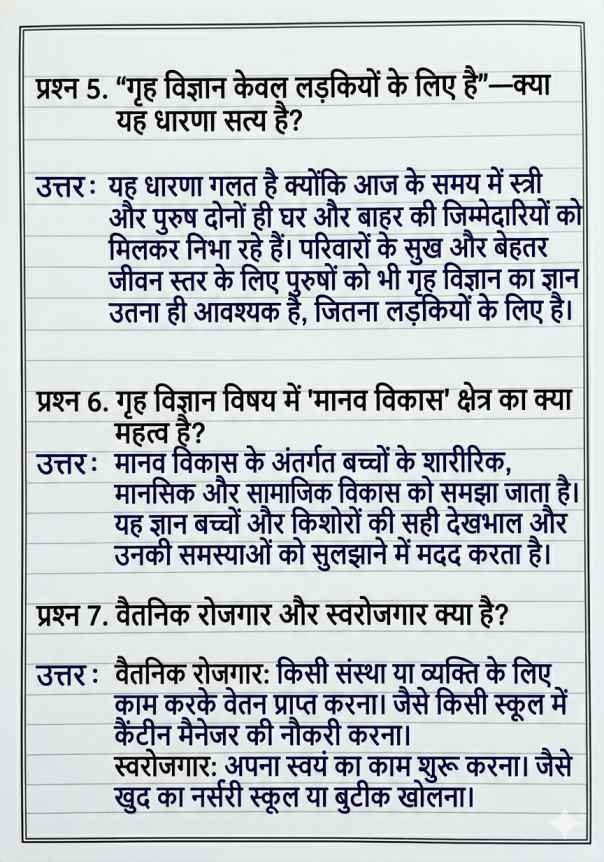 प्रश्न 5. “गृह विज्ञान केवल लड़कियों के लिए है”—क्या
यह धारणा सत्य है?
उत्तर : यह धारणा गलत है क्योंकि आज के समय में स्त्री
और पुरुष दोनों ही घर और बाहर की जिम्मेदारियों को
मिलकर निभा रहे हैं। परिवारों के सुख और बेहतर
जीवन स्तर के लिए पुरुषों को भी गृह विज्ञान का ज्ञान
उतना ही आवश्यक है, जितना लड़कियों के लिए है।
प्रश्न 6. गृह विज्ञान विषय में 'मानव विकास' क्षेत्र का क्या
महत्व है?
उत्तर : मानव विकास के अंतर्गत बच्चों के शारीरिक,
मानसिक और सामाजिक विकास को समझा जाता है।
यह ज्ञान बच्चों और किशोरों की सही देखभाल और
उनकी समस्याओं को सुलझाने में मदद करता है।
प्रश्न 7. वैतनिक रोजगार और स्वरोजगार क्या है?
उत्तर : वैतनिक रोजगार: किसी संस्था या व्यक्ति के लिए
काम करके वेतन प्राप्त करना। जैसे किसी स्कूल में
कैंटीन मैनेजर की नौकरी करना।
स्वरोजगार: अपना स्वयं का काम शुरू करना। जैसे
खुद का नर्सरी स्कूल या बुटीक खोलना।